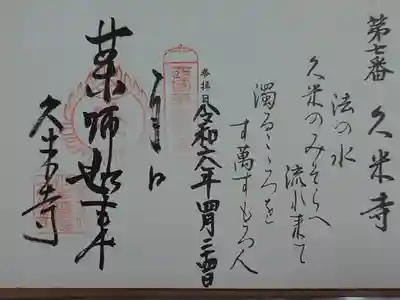 第七番 久米寺
法の水
久米のみそらへ
流れ来て
濁るこゝろを
す萬すもろ人
参拝日
令和六年四月二十四日
薬師如来
久米寺